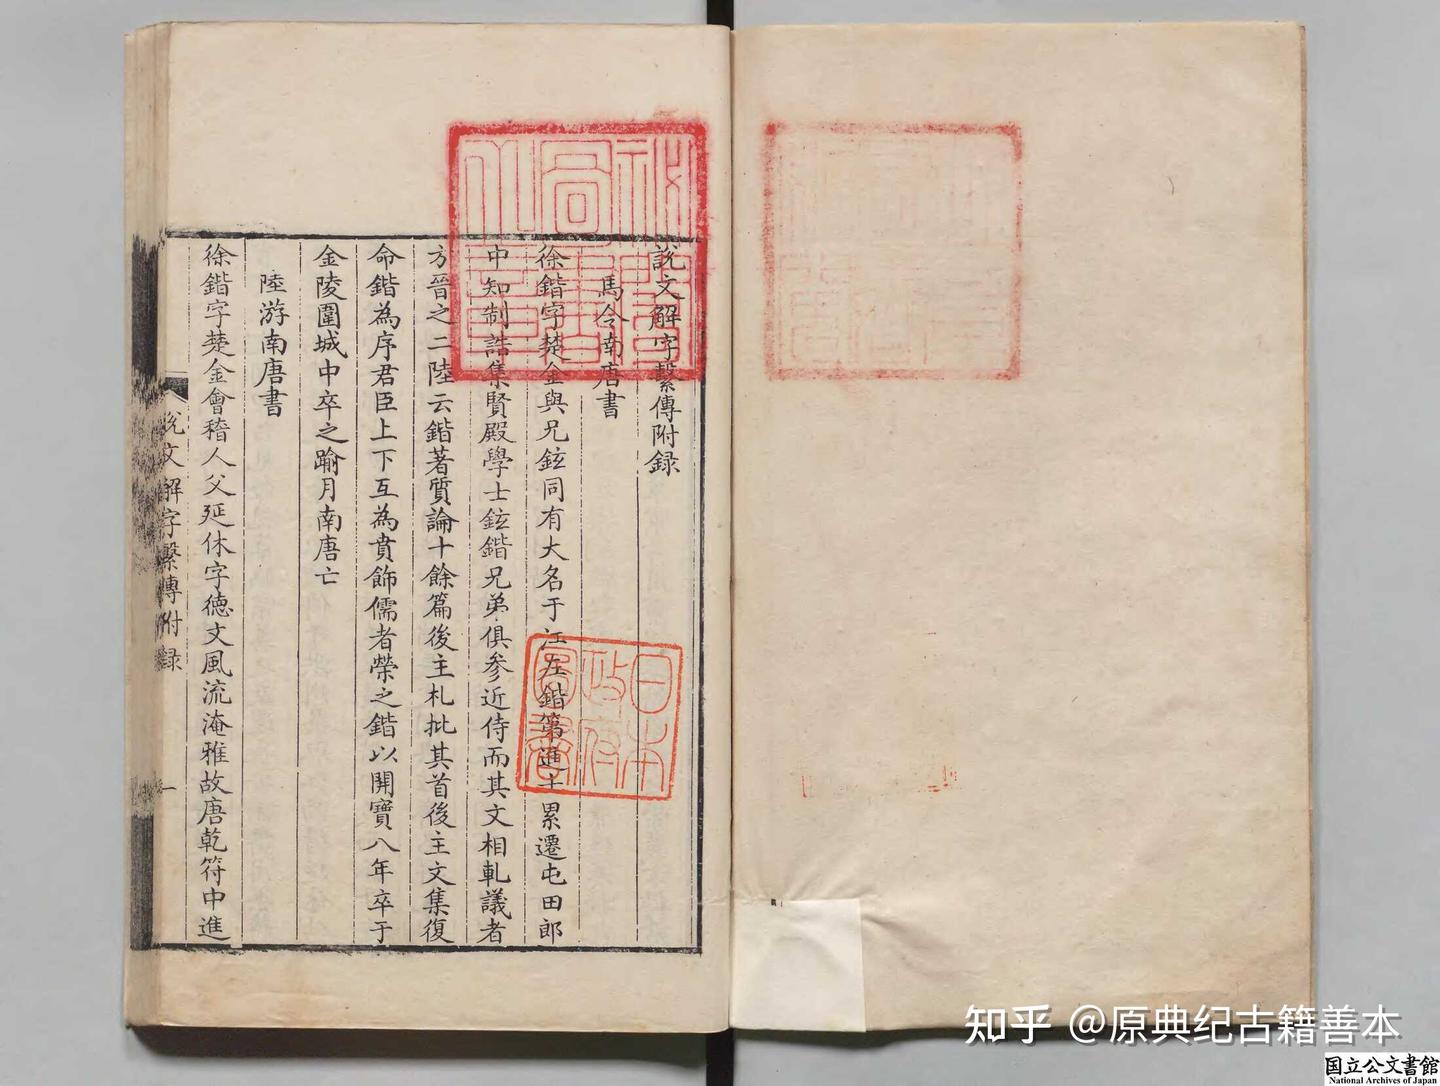 說文解字繫傳附錄
馬令南唐書
徐鍇字楚金與兄鉉同有大名于江左鍇第進士累遷屯田郎
中知制誥集賢殿學士鉉鍇兄弟俱參近侍而其文相軋議者
方晉之二陸云鍇著質論十餘篇後主札批其首後主文集復
命鍇為序君臣上下互為賁飾儒者榮之鍇以開寶八年卒于
金陵圍城中卒之踰月南唐亡
陸游南唐書
徐鍇字楚金會稽人父延休字德文風流淹雅故唐乾符中進
說文解字繫傳附錄
一
日本
政府
圖書
知乎 @原典纪古籍善本
国立公文書館
National Archives of Japan